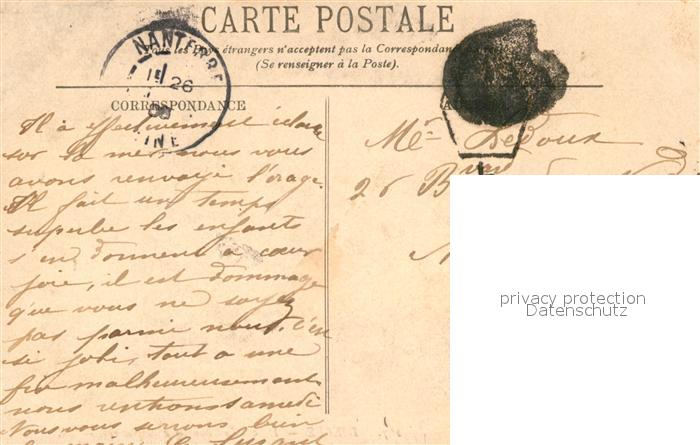 CARTE POSTALE
Tous les Pays étrangers n'acceptent pas la Correspondance
(Se renseigner à la Poste).
NANTERRE
26
08
INE
CORRESPONDANCE
Il a effectivement éclaté
sur la mer nous vous
avons renvoyé l'orage.
Il fait un temps
superbe les enfants
s'en donnent à cœur
joie, il est dommage
que vous ne soyez
pas parmi nous, c'est
si joli, tout a une
fin malheureusement
nous rentrons samedi
Nous vous serrons bien
Mr Ledoux
26 B
privacy protection
Datenschutz